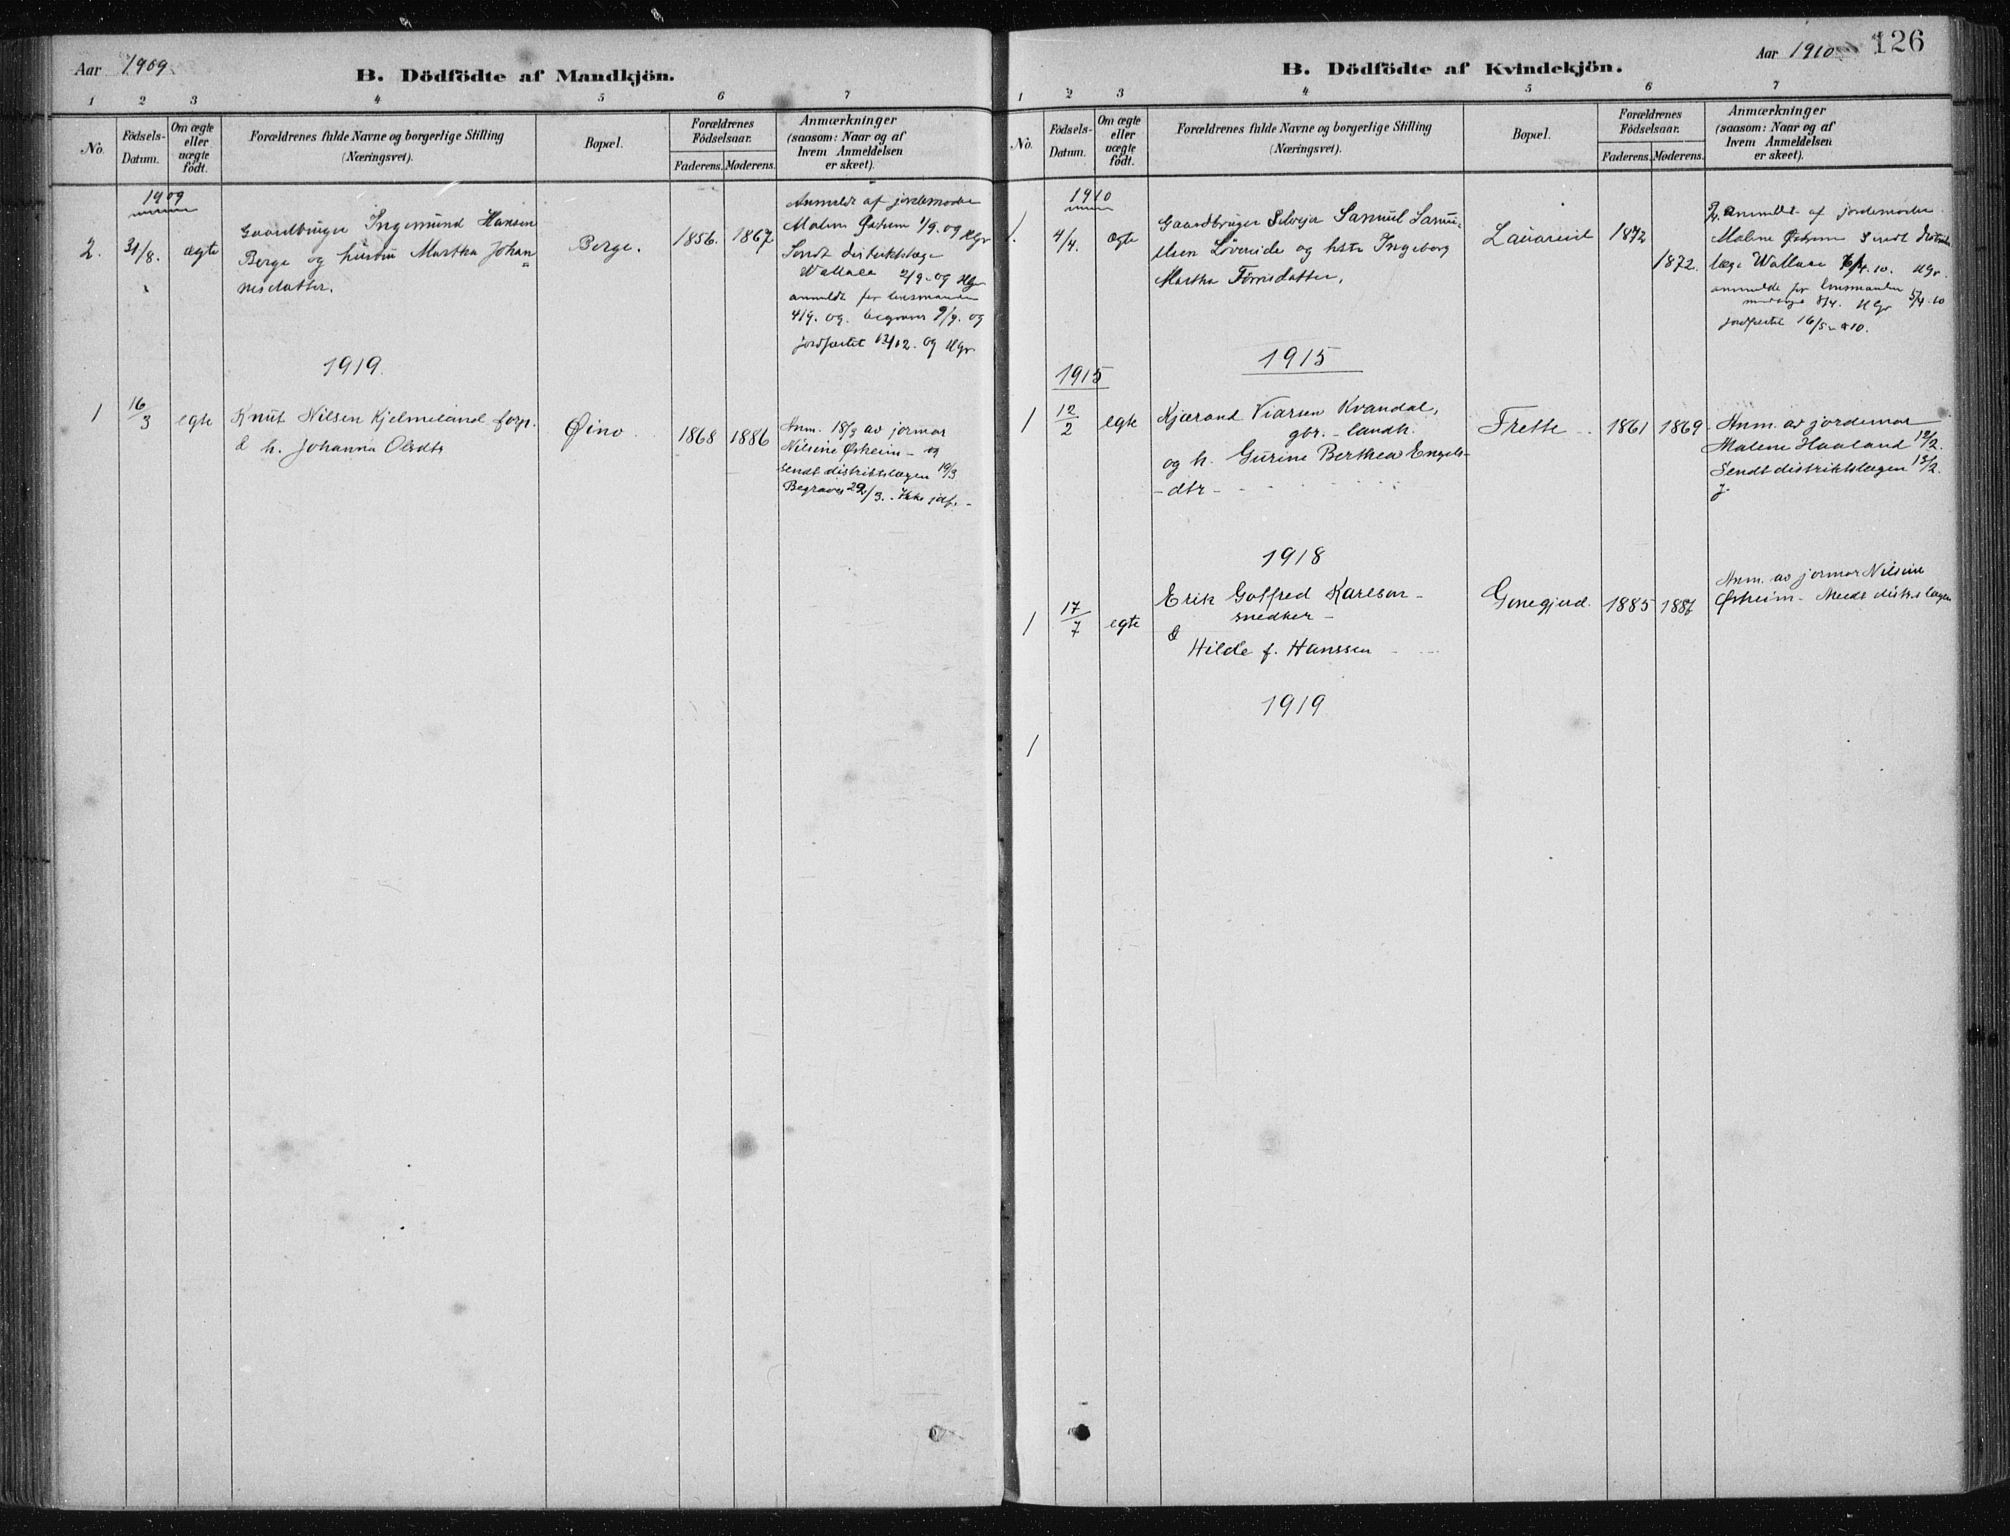 Aar 1909
B. Dödfödte af Mandkjön.
1 2 3 4 5 6 7
No.
Födsels-
Datum.
Om ægte
eller
uægte
födt.
Forældrenes fulde Navne og borgerlige Stilling
(Næringsvei).
Bopæl.
Forældrenes
Födselsaar.
Faderens. Moderens.
Anmærkninger
(saasom: Naar og af
hvem Anmeldelsen
er skeet).
1909
2. 31/8. ægte
Gaardbruger Ingemund Hansen
Berge og hustru Martha Johan=
nesdatter.
Berge. 1856. 1867
Anmeldt af jordemoder
Malene Østrem 1/9. 09 HGr
Sendt distriktslæge
Wallace 2/9. 09 HGr
anmeldt for lensmanden
4/9. 09. begravet 9/9. 09
jordfæstet 12/12. 09 HGr
1919.
1 16/3 egte
Knut Nilsen Kjelmeland forp.
& h. Johanna Olsdtr
Øino. 1868 1886
Anm. 18/3 av jormor
Nilsine Østrem - og
sendt distriktslægen 19/3
Begravet 22/3. Ikke jdf. -
Aar 1910 126
B. Dödfödte af Kvindekjön.
1 2 3 4 5 6 7
No.
Födsels-
Datum.
Om ægte
eller
uægte
födt.
Forældrenes fulde Navne og borgerlige Stilling
(Næringsvei).
Bopæl.
Forældrenes
Födselsaar.
Faderens. Moderens.
Anmærkninger
(saasom: Naar og af
hvem Anmeldelsen
er skeet).
1910
1. 4/4. ægte
Gaardbruger Samuel Samu-
elsen Løvereide og hstr Ingeborg
Martha Tørrisdatter.
Lauareid 1872
1872.
anmeldt af jordemoder
Malene Østrem Sendt distrikts
læge Wallace 4.10. HGr.
anmeldt for lensmanden
8/4. HGr 5/4.10
jordfæstet 16/5 - 10.
1915
1915
1 12/2 egte
Kjærand Viarsen Kvandal,
gbr. - landh.
og h. Gurine Berthea Engels-
- dtr -
Trette. 1861 1869
Anm. av jordemor
Malene Haaland 12/2.
Sendt distriktslægen 13/2.
1918
1 17/7 egte
Erik Gotfred Karlson -
snedker -
&
Hilde f. Hanssen
1885 1887
Anm. av jormor Nilsine
Østrem - distr.lægen
1919
1